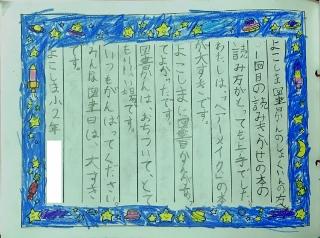 よこしま図書かんのしょくいんの方
一回目の読みきかせの本の
読み方がとっても上手でした。
わたしは、「ヘアーメイク」の本
が大すきです。
よこしまに図書かんがあっ
てよかったです。
図書かんは、おちついて、とて
もいい場です。
いつもがんばってください。
みんな図書日は、大すき
です。
よこしま小2年